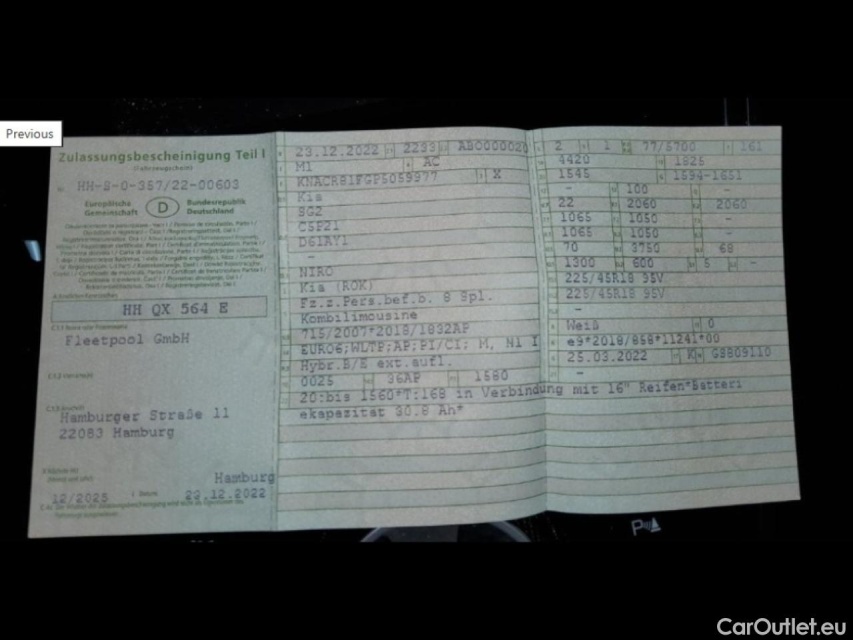 Previous
Zulassungsbescheinigung Teil I
(Fahrzeugschein)
HH-S-0-357/22-00603
Europäische Gemeinschaft D Bundesrepublik Deutschland
HH QX 564 E
Fleetpool GmbH
Hamburger Straße 11
22083 Hamburg
Hamburg
12/2025 23.12.2022
23.12.2022 2233
M1 AC
X
Kia
SG2
C5P21
D61AY1
-
NIRO
Kia (ROK)
Fz.z.Pers.bef.b. 8 Spl.
Kombilimousine
715/2007*2018/1832AP
EURO6;WLTP;AP;PI/CI; M, N1 I
Hybr.B/E ext.aufl.
0025 36AP 1580
20:bis 1560*T:168 in Verbindung mit 16" Reifen*Batteri
ekapazität 30.8 Ah*
2 1 77/5700 161
4420 1825
1545 1594-1651
- 100 -
22 2060 2060
1065 1050 -
1065 1050 -
70 3750 68
1300 600 5 -
225/45R18 95V
225/45R18 95V
-
Weiß 0
e9*2018/858*11241*00
25.03.2022 K
-
CarOutlet.eu